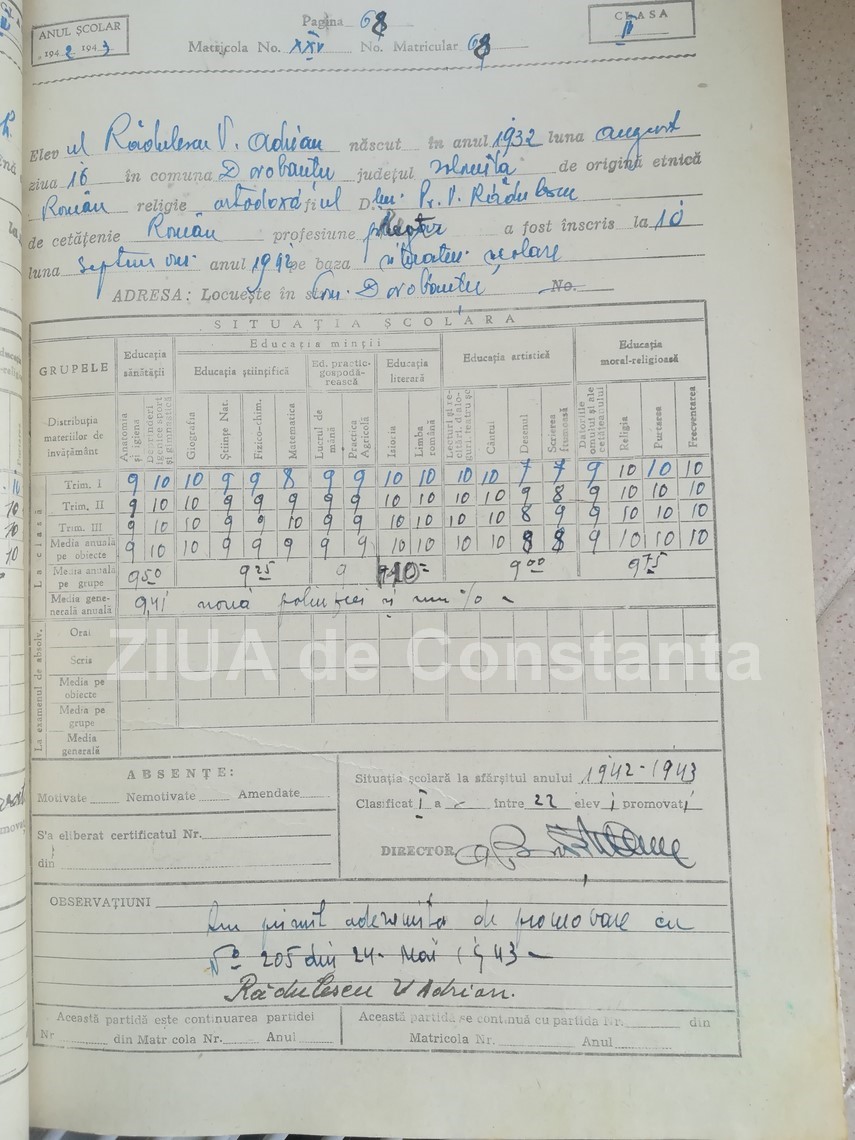 ANUL ŞCOLAR
1942 1943
Pagina 68
Matricola No. XXV No. Matricular 68
CLASA
II
Elev ul Rădulescu V. Adrian născut în anul 1932 luna august
ziua 16 în comuna Dorobanţu judeţul Ialomiţa de origină etnică
Român religie ortodoxă fiul D lui Pr. V. Rădulescu
de cetăţenie Român profesiune a fost înscris la 10
luna anul 1942 pe baza şcolare
ADRESA: Locueşte în Com. Dorobanţu No.
SITUAŢIA ŞCOLARA
GRUPELE
Educaţia sănătăţii
Educaţia minţii
Educaţia ştiinţifică
Ed. practic-gospodărească
Educaţia literară
Educaţia artistică
Educaţia moral-religioasă
Distribuţia materiilor de învăţământ
Anatomia şi igiena
Deprinderi igienice sport şi gimnastică
Giografia
Ştiinţe Nat.
Fizico-chim.
Matematica
Lucrul de mână
Practica Agricolă
Istoria
Limba română
Lecturi şi recitări, dialoguri, teatru şc
Cântul
Desenul
Scrierea frumoasă
Datoriile omului şi ale cetăţeanului
Religia
Purtarea
Frecventarea
La clasă
Trim. I 9 10 10 9 9 8 9 9 10 10 10 10 7 7 9 10 10 10
Trim. II 9 10 10 9 9 9 9 9 10 10 10 10 9 8 9 10 10 10
Trim. III 9 10 10 9 9 10 9 9 10 10 10 10 8 9 9 10 10 10
Media anuală pe obiecte 9 10 10 9 9 9 9 9 10 10 10 10 8 8 9 10 10 10
Media anuală pe grupe 9 50 9 25 9 10 9 00 9 75
Media generală anuală 9,41 nouă şi %
La examenul de absolv.
Oral
Scris
Media pe obiecte
Media pe grupe
Media generală
ZIUA de Constanta
ABSENŢE:
Motivate Nemotivate Amendate
S'a eliberat certificatul Nr.
din
Situaţia şcolară la sfârşitul anului 1942-1943
Clasificat I a între 22 elevi promovaţi
DIRECTOR
OBSERVAŢIUNI
Am primit adeverinţa de promovare cu
No 205 din 24 Mai 1943
Rădulescu V Adrian.
Această partidă este continuarea partidei
Nr din Matricola Nr. Anul
Această partidă se continuă cu partida Nr. din
Matricola Nr. Anul